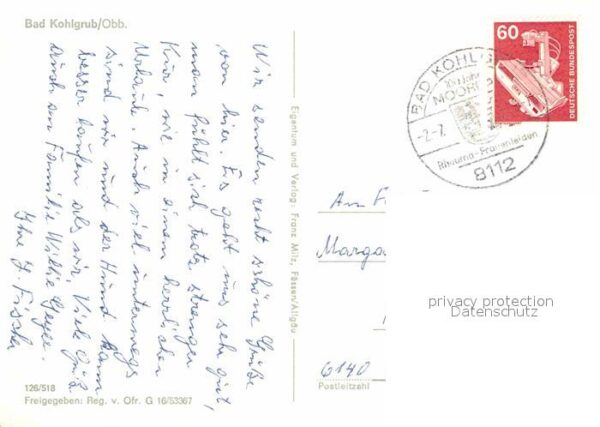 Bad Kohlgrub/Obb.
Wir senden recht schöne Grüße
von hier. Es geht uns sehr gut,
man fühlt sich trotz strenger
Kur, wie in einem herrlichen
Urlaub. Auch viel unterwegs
sind wir und der Hund kann
besser laufen als wir. Viele Grüße
auch an Familie Willie Geyer.
Ihre J. Fischer
126/518
Freigegeben: Reg. v. Ofr. G 16/53367
Eigentum und Verlag: Franz Milz, Füssen/Allgäu
60
DEUTSCHE BUNDESPOST
BAD KOHL
MOOR
-2.-7.
Rheuma-Frauenleiden
8112
An F
Marga
6140
Postleitzahl
privacy protection
Datenschutz